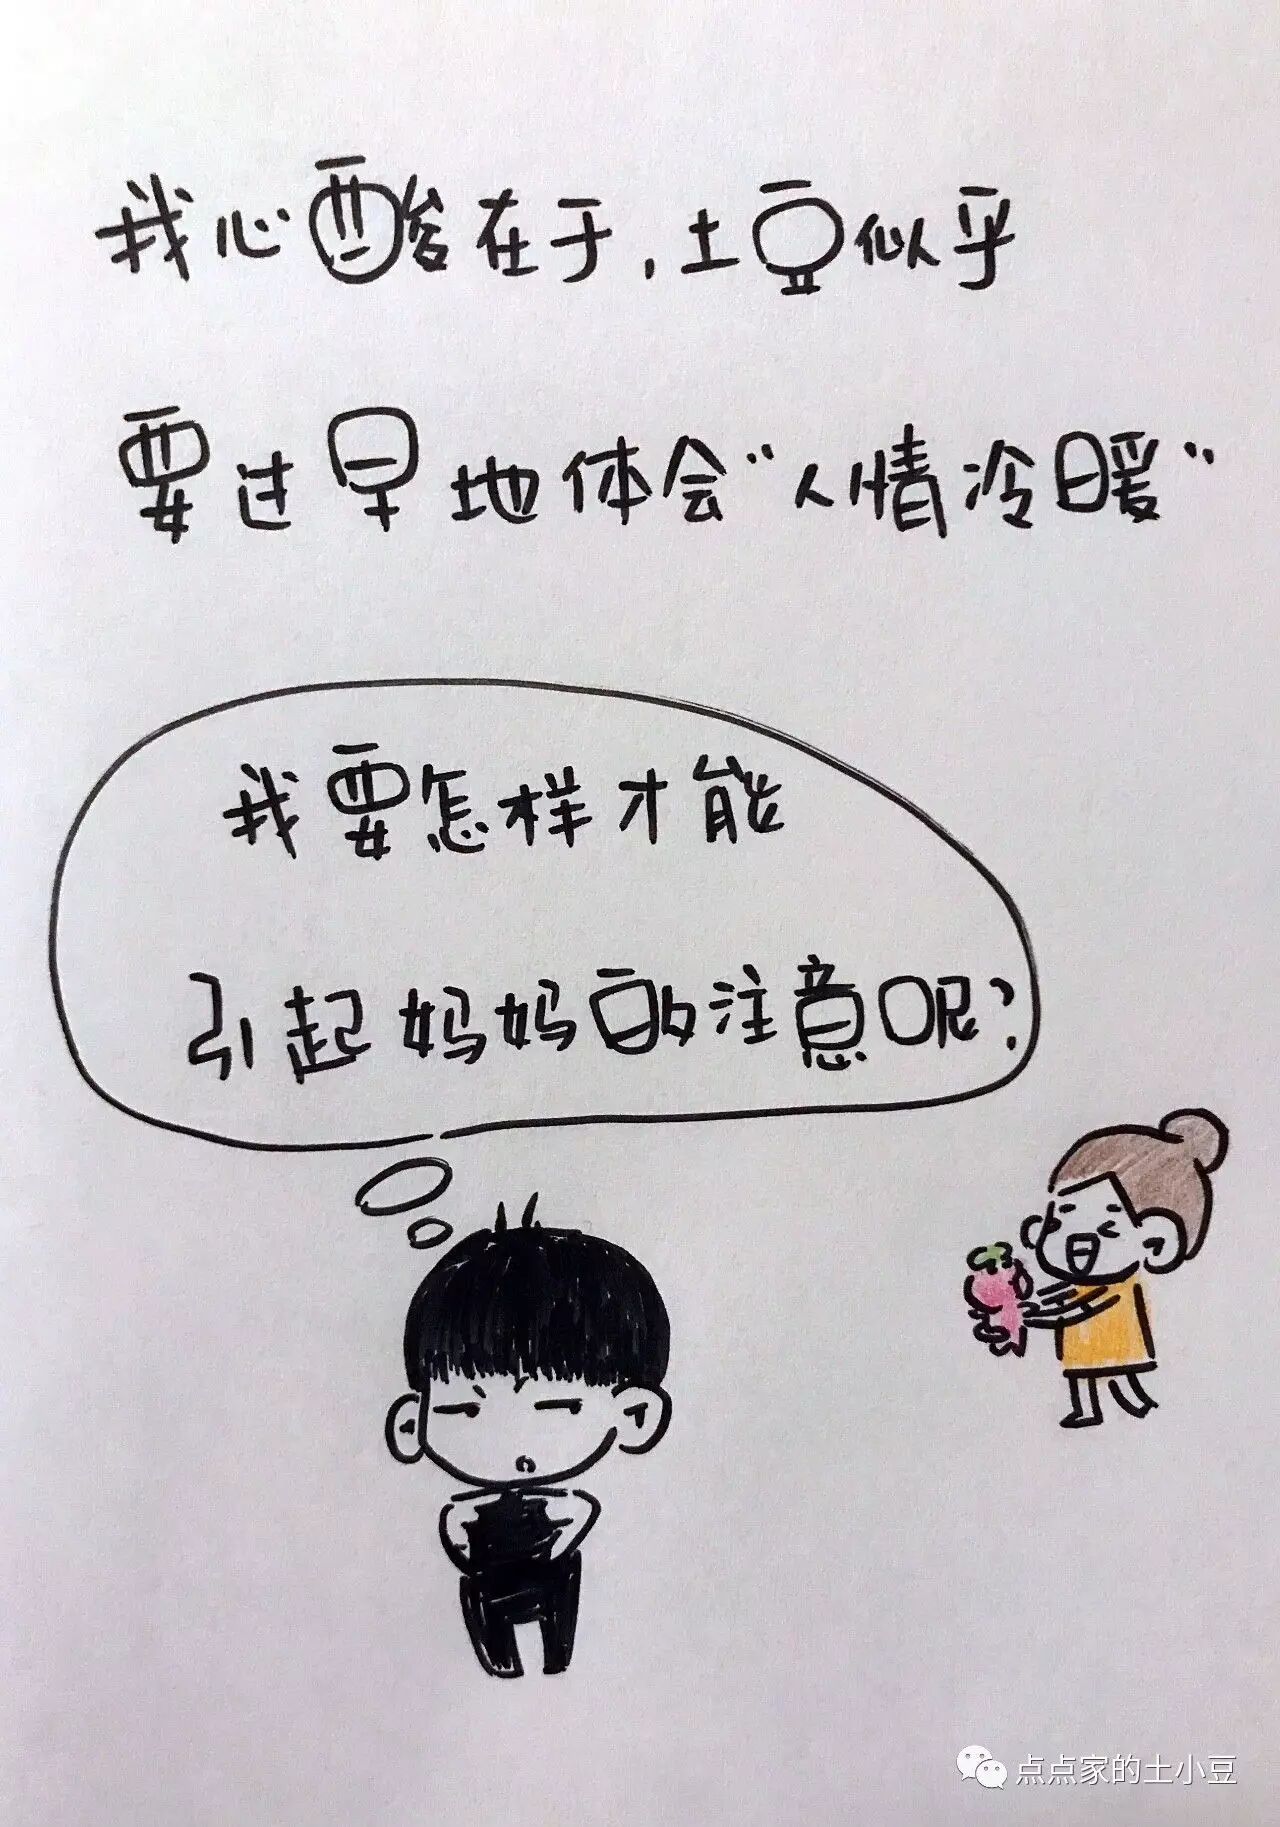 我心酸在于，土豆似乎
要过早地体会“人情冷暖”
我要怎样才能
引起妈妈的注意呢？
点点家的土小豆